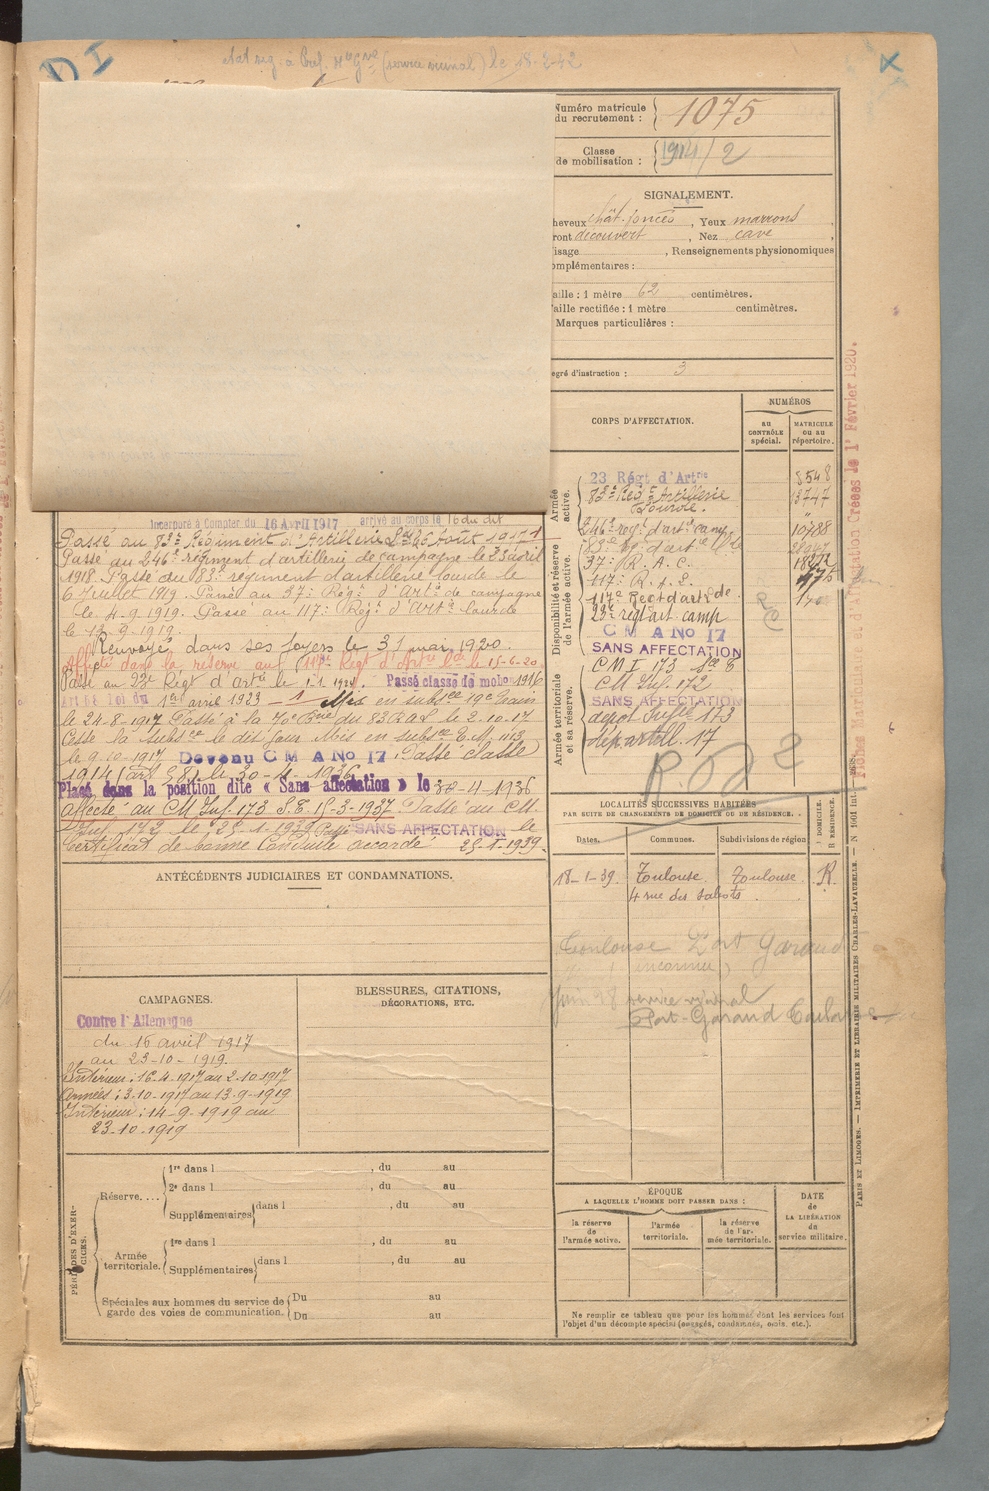 D I
le 18-2-42
Numéro matricule
du recrutement :
1075
Classe
de mobilisation :
1914/2
SIGNALEMENT.
heveux chât. foncés, Yeux marrons,
ront découvert, Nez cave,
isage , Renseignements physionomiques
omplémentaires :
aille : 1 mètre 62 centimètres.
aille rectifiée : 1 mètre centimètres.
Marques particulières :
egré d'instruction : 3
CORPS D'AFFECTATION.
NUMÉROS
au
CONTRÔLE
spécial.
MATRICULE
ou au
répertoire.
Armée
active.
23 Régt d'Artrie
8548
83e Régt Artillerie
13747
Lourde.
Disponibilité et réserve
de l'armée active.
246e reg. d'art. camp
10788
37e R. A. C.
117e R. A. L.
117e Regt d'art. lde.
23e reg. art. camp
C M A No 17
SANS AFFECTATION
Armée territoriale
et sa réserve.
CM I 173
CM Inf. 172
SANS AFFECTATION
dépôt Infie 173
départ ll. 17
Incorporé à Compter du 16 Avril 1917 arrivé au corps le 16 du dit
Passé au 83e Régiment d'Artillerie Lde 26 Août 1917
Passé au 246e régiment d'artillerie de campagne le 23 avril
1918. Passé au 83e régiment d'artillerie lourde le
6 Juillet 1919. Passé au 37e Rég. d'Artie de campagne
le 4-9-1919. Passé au 117e Rég. d'Artie Lourde
le 13-9-1919.
Renvoyé dans ses foyers le 31 mai 1920
Affecté dans la réserve au 117e Regt d'Artie Lde le 15-6-20
Passé au 23e Régt d'Artie le 1-1 1924. Passé classe de mobon 1916
Art 58 Loi du 1er avril 1923 Mis en subsce 19e Train
le 24-8-1917 Passé à la 70e Brie du 83 RAL le 2-10-17
Cesse la subsce le dit jour Mis en subsce
le 9-10-1917 Devenu C M A No 17. Passé classe
1914 (art 58) le 30-4-1936
Placé dans la position dite « Sans affectation » le 30-4-1936
affecté au CM Inf. 173 S.E. 15-3-1937 Passé au CM
Inf. 172 le 25-1-1939 Passé SANS AFFECTATION le
Certificat de bonne Conduite accordé 25-1-1939.
LOCALITÉS SUCCESSIVES HABITÉES
PAR SUITE DE CHANGEMENTS DE DOMICILE OU DE RÉSIDENCE.
Dates.
Communes.
Subdivisions de région
D. DOMICILE.
R. RÉSIDENCE.
18-1-39. Toulouse Toulouse R.
4 rue des sabots
Toulouse Port Garaud
(inconnu)
Juin 28 service vicinal
Port-Garaud Toulouse
ANTÉCÉDENTS JUDICIAIRES ET CONDAMNATIONS.
CAMPAGNES.
Contre l'Allemagne
du 16 avril 1917
au 23-10-1919.
Intérieur : 16-4-1917 au 2-10-1917
Armées : 3-10-1917 au 13-9-1919
Intérieur : 14-9-1919 au
23-10-1919
BLESSURES, CITATIONS,
DÉCORATIONS, ETC.
PÉRIODES D'EXER-
CICES.
Réserve....
1re dans l , du au
2e dans l , du au
Supplémentaires dans l , du au
Armée
territoriale.
1re dans l , du au
Supplémentaires dans l , du au
Spéciales aux hommes du service de
garde des voies de communication.
Du au
Du au
ÉPOQUE
A LAQUELLE L'HOMME DOIT PASSER DANS :
la réserve
de
l'armée active.
l'armée
territoriale.
la réserve
de l'ar-
mée territoriale.
DATE
de
LA LIBÉRATION
du
service militaire.
Ne remplir ce tableau que pour les hommes dont les services font
l'objet d'un décompte spécial (engagés, condamnés, omis, etc.).
Fiches Matriculaire et d'Affectation Créées le 1er Février 1920.
PARIS ET LIMOGES. — IMPRIMERIE ET LIBRAIRIE MILITAIRES CHARLES-LAVAUZELLE.